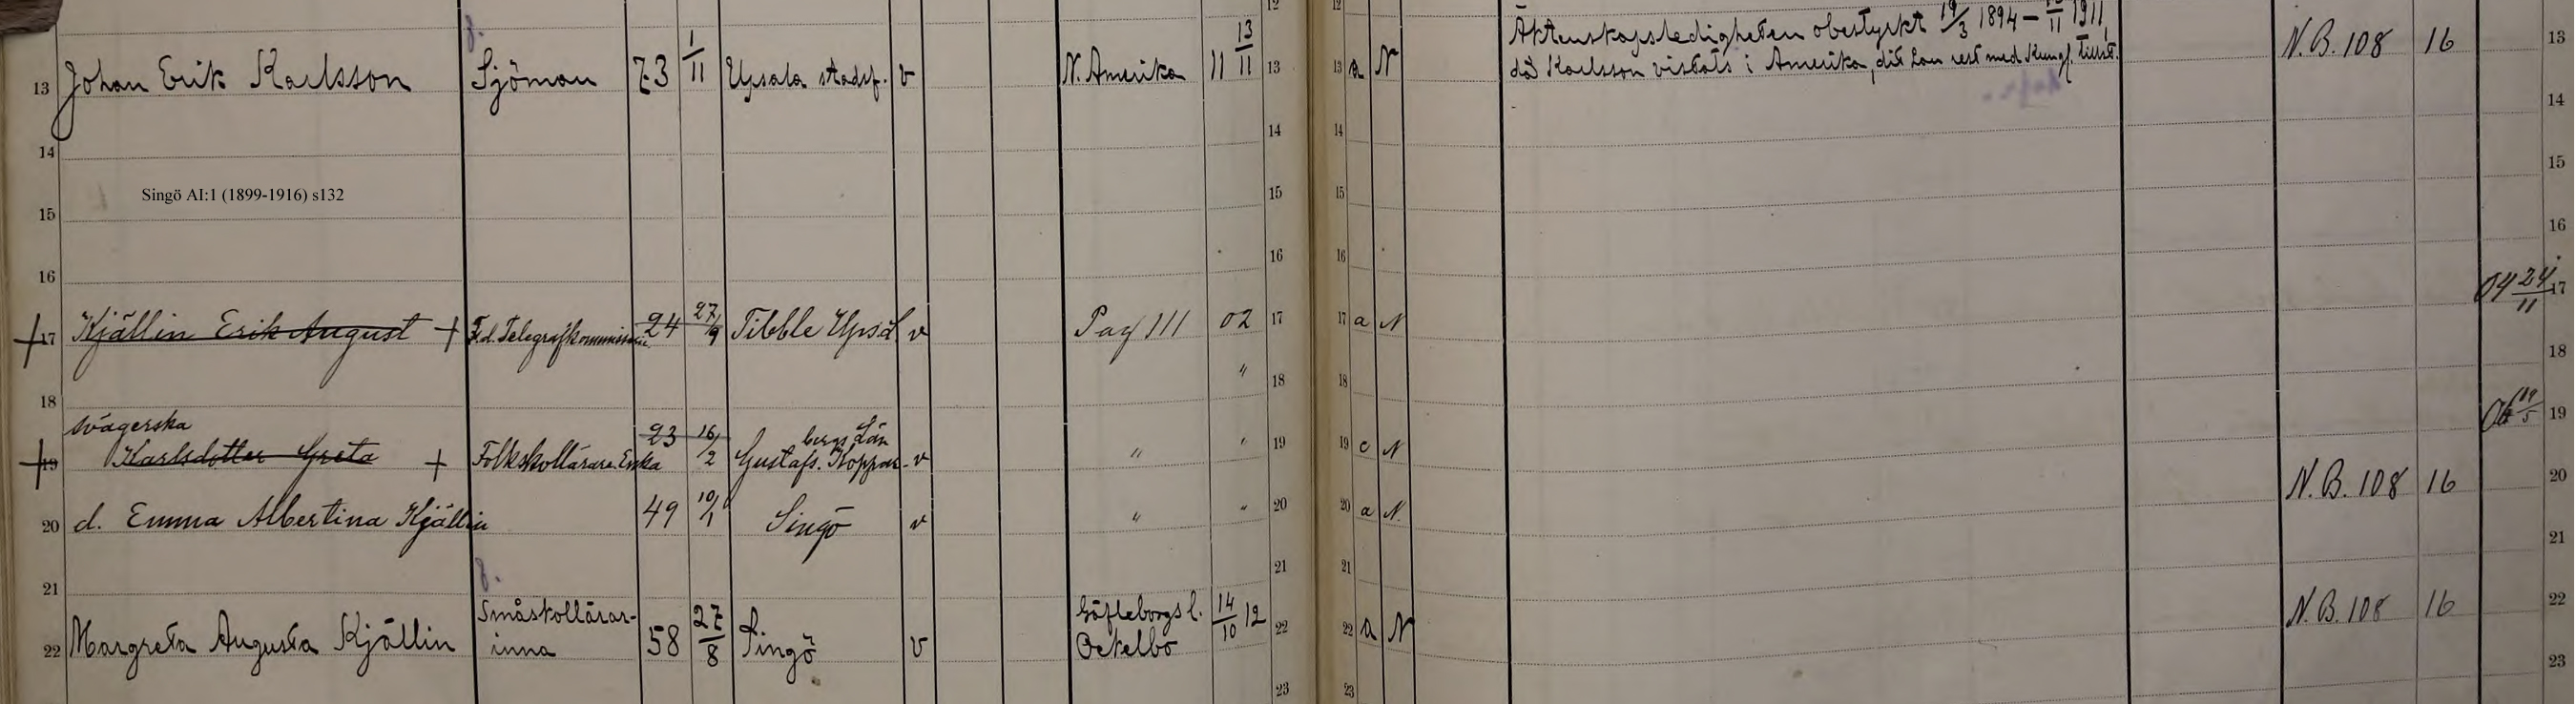 Äktenskapsledigheten obestyrkt 19/3 1894 – 13/11 1911,
13 Johan Erik Karlsson Sjöman 73 1/11 Upsala stadsf. v N. Amerika 11 13/11 13 13 a N då Karlsson vistats i Amerika, dit han rest med Kungl. tillst. N.B. 108 16 13
14 14 14 14
Singö AI:1 (1899-1916) s132
15 15 15 15
16 16 16 16
17 Kjällin Erik August + F.d. Telegrafkommissarie 24 27/9 Tibble Upsal. v Pag 111 02 17 17 a N 04 24/11 17
18 " 18 18 18
svägerska
19 Karlsdotter Greta + Folkskollärare Enka 23 16/2 Gustafs. Kopparbergs Län v " " 19 19 c N 06 19/5 19
20 d. Emma Albertina Kjällin 49 10/1 Singö v " " 20 20 a N. N.B. 108 16 20
21 21 21 21
22 Margreta Augusta Kjällin Småskollärar-
inna 58 27/8 Singö v Gäfleborgs l.
Ockelbo 14/10 12 22 22 a N N.B. 108 16 22
23 23 23